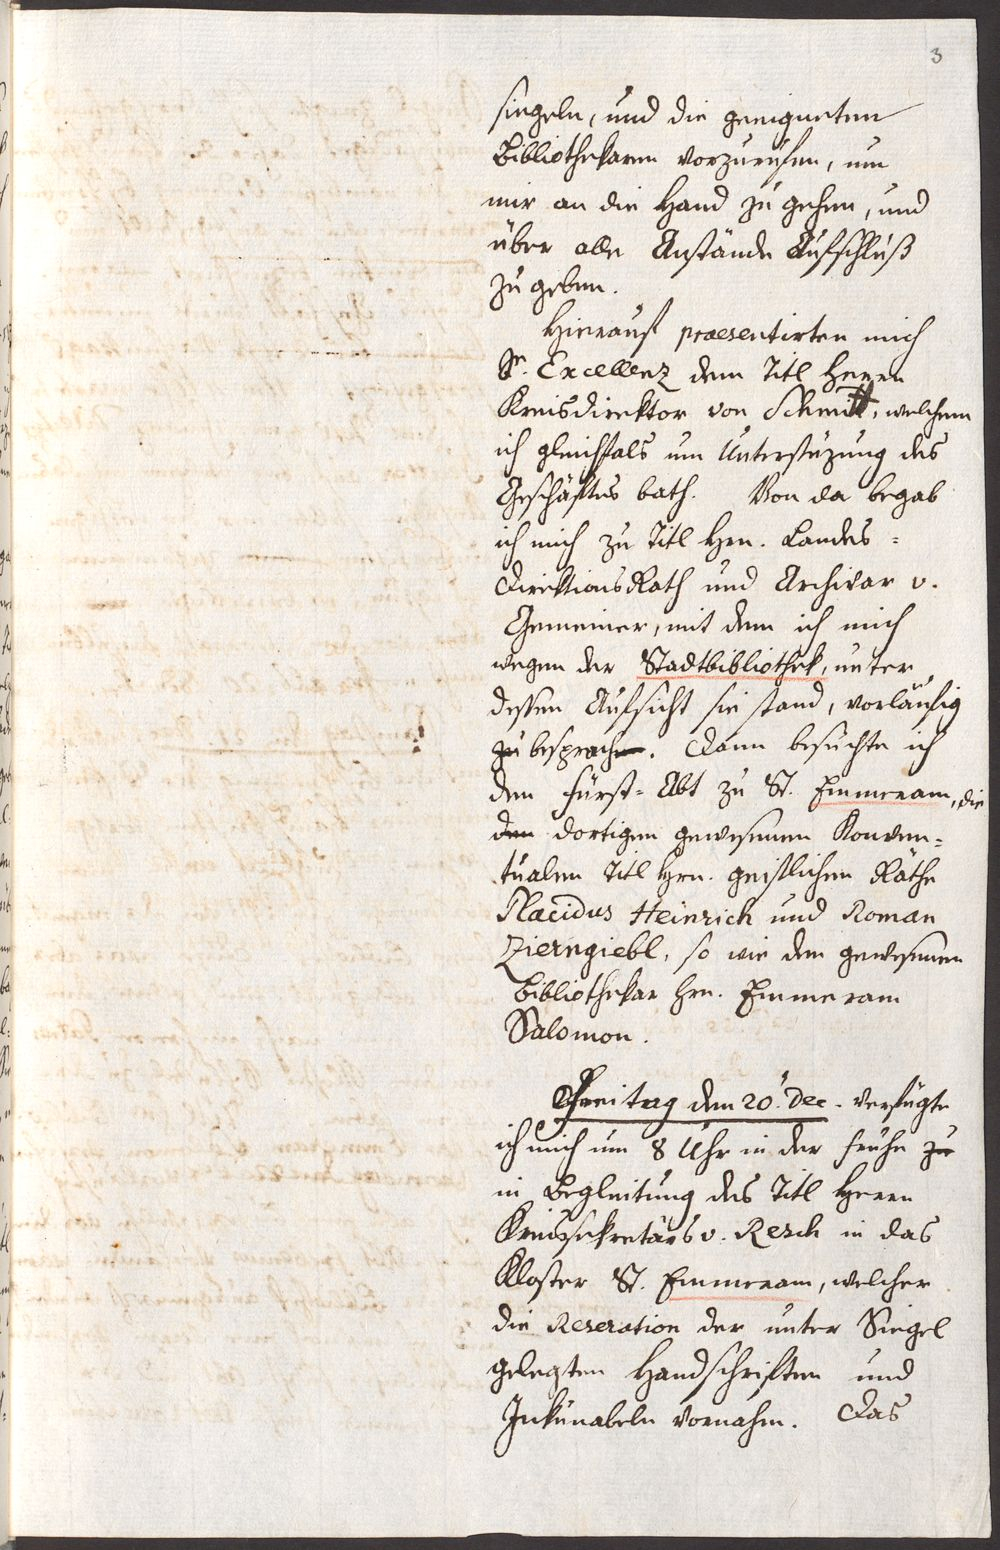 3
siegeln, und die geeigneten
Bibliothekaren vorzurufen, um
mir an die Hand zu gehen, und
über alle Anstände Aufschluß
zu geben.
Hierauf praesentirten mich
Sr. Excellenz dem Titl Herrn
Kreisdirektor von Schmitt, welchem
ich gleichfals um Unterstüzung des
Geschäftes bath. Von da begab
ich mich zu Titl Hrn. Landes=
DirektionsRath und Archivar v.
Gemeiner, mit dem ich mich
wegen der Stadtbibliothek, unter
dessen Aufsicht sie stand, vorläufig
zu besprach. Dann besuchte ich
den Fürst=Abt zu St. Emmeram, die
den dortigen gewesenen Konven=
tualen Titl Hrn. geistlichen Räthe
Placidus Heinrich und Roman
Zierngiebl, so wie den gewesenen
Bibliothekar Hrn. Emmeram
Salomon.
Freitag den 20. Dec. verfügte
ich mich um 8 Uhr in der Frühe zu
in Begleitung des Titl Herrn
Kreissekretärs v. Resch in das
Kloster St. Emmeram, welcher
die Reseration der unter Siegel
gelegten Handschriften und
Inkunabeln vornahm. Das